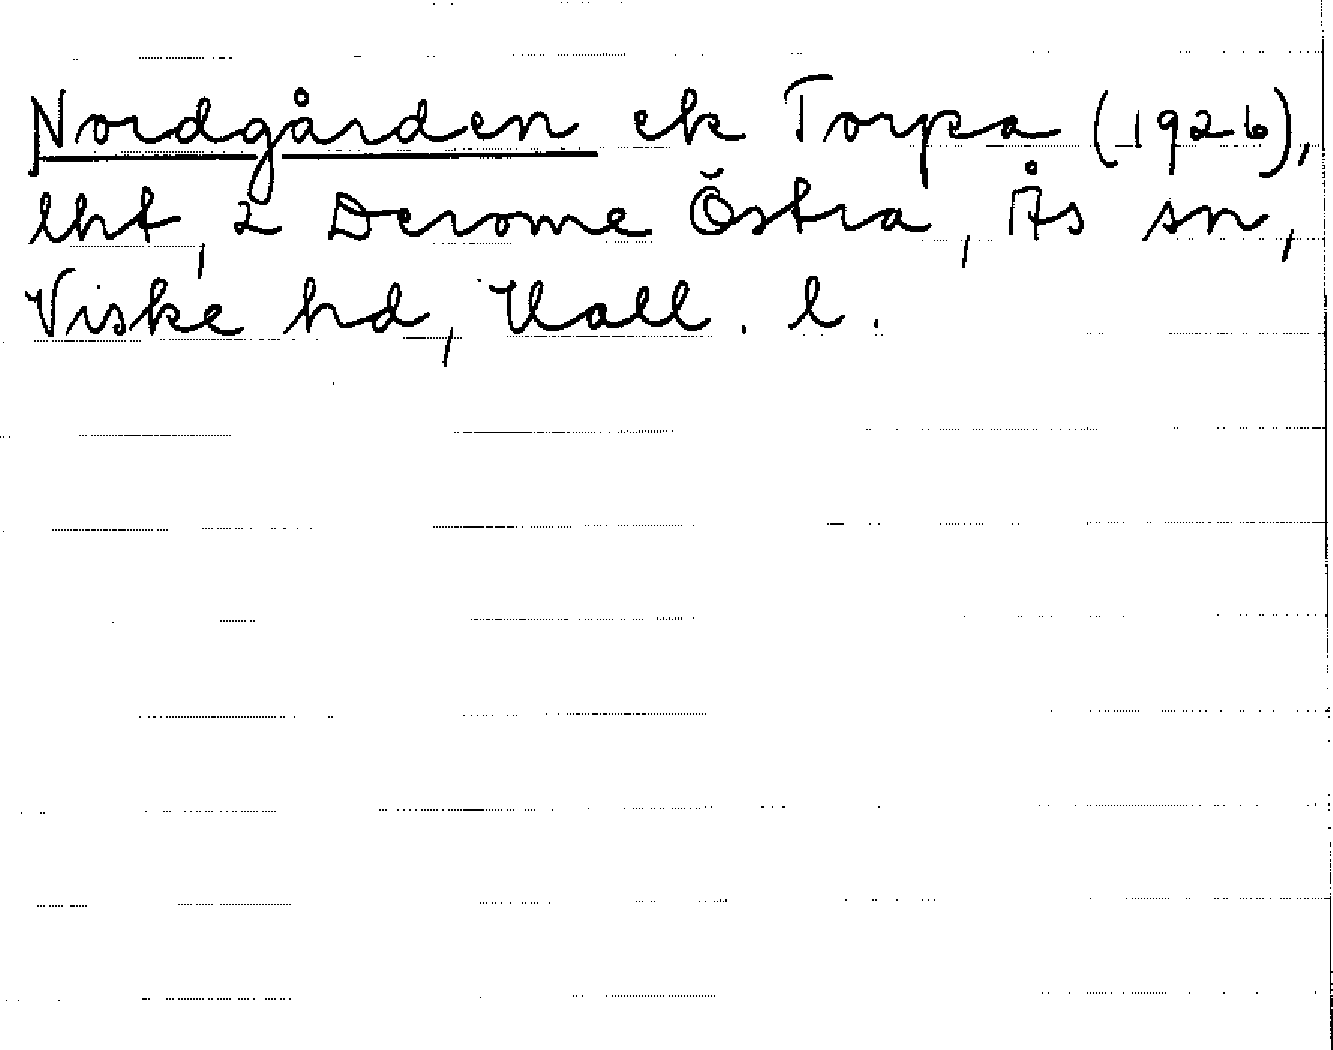 Nordgården ek Torpa (1926),
lht, 2 Derome Östra, Ås sn,
Viske hd, Hall. l.